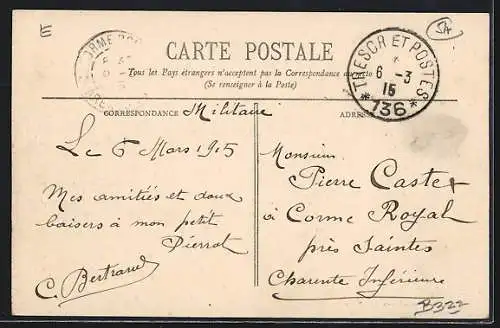 E
SA
CARTE POSTALE
Tous les Pays étrangers n'acceptent pas la Correspondance au recto
(Se renseigner à la Poste)
TRESOR ET POSTES
*
6 -3
15
* 136 *
CORRESPONDANCE
Militaire
ADRESSE
Le 6 Mars 1915
Mes amitiés et doux
baisers à mon petit
Pierrot
C. Bertrand
Monsieur
Pierre Castex
à Corme Royal
près Saintes
Charente Inférieure
B322